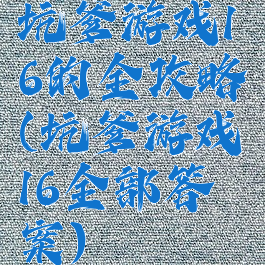 坑爹游戏1
6的全攻略
(坑爹游戏
16全部答
案)